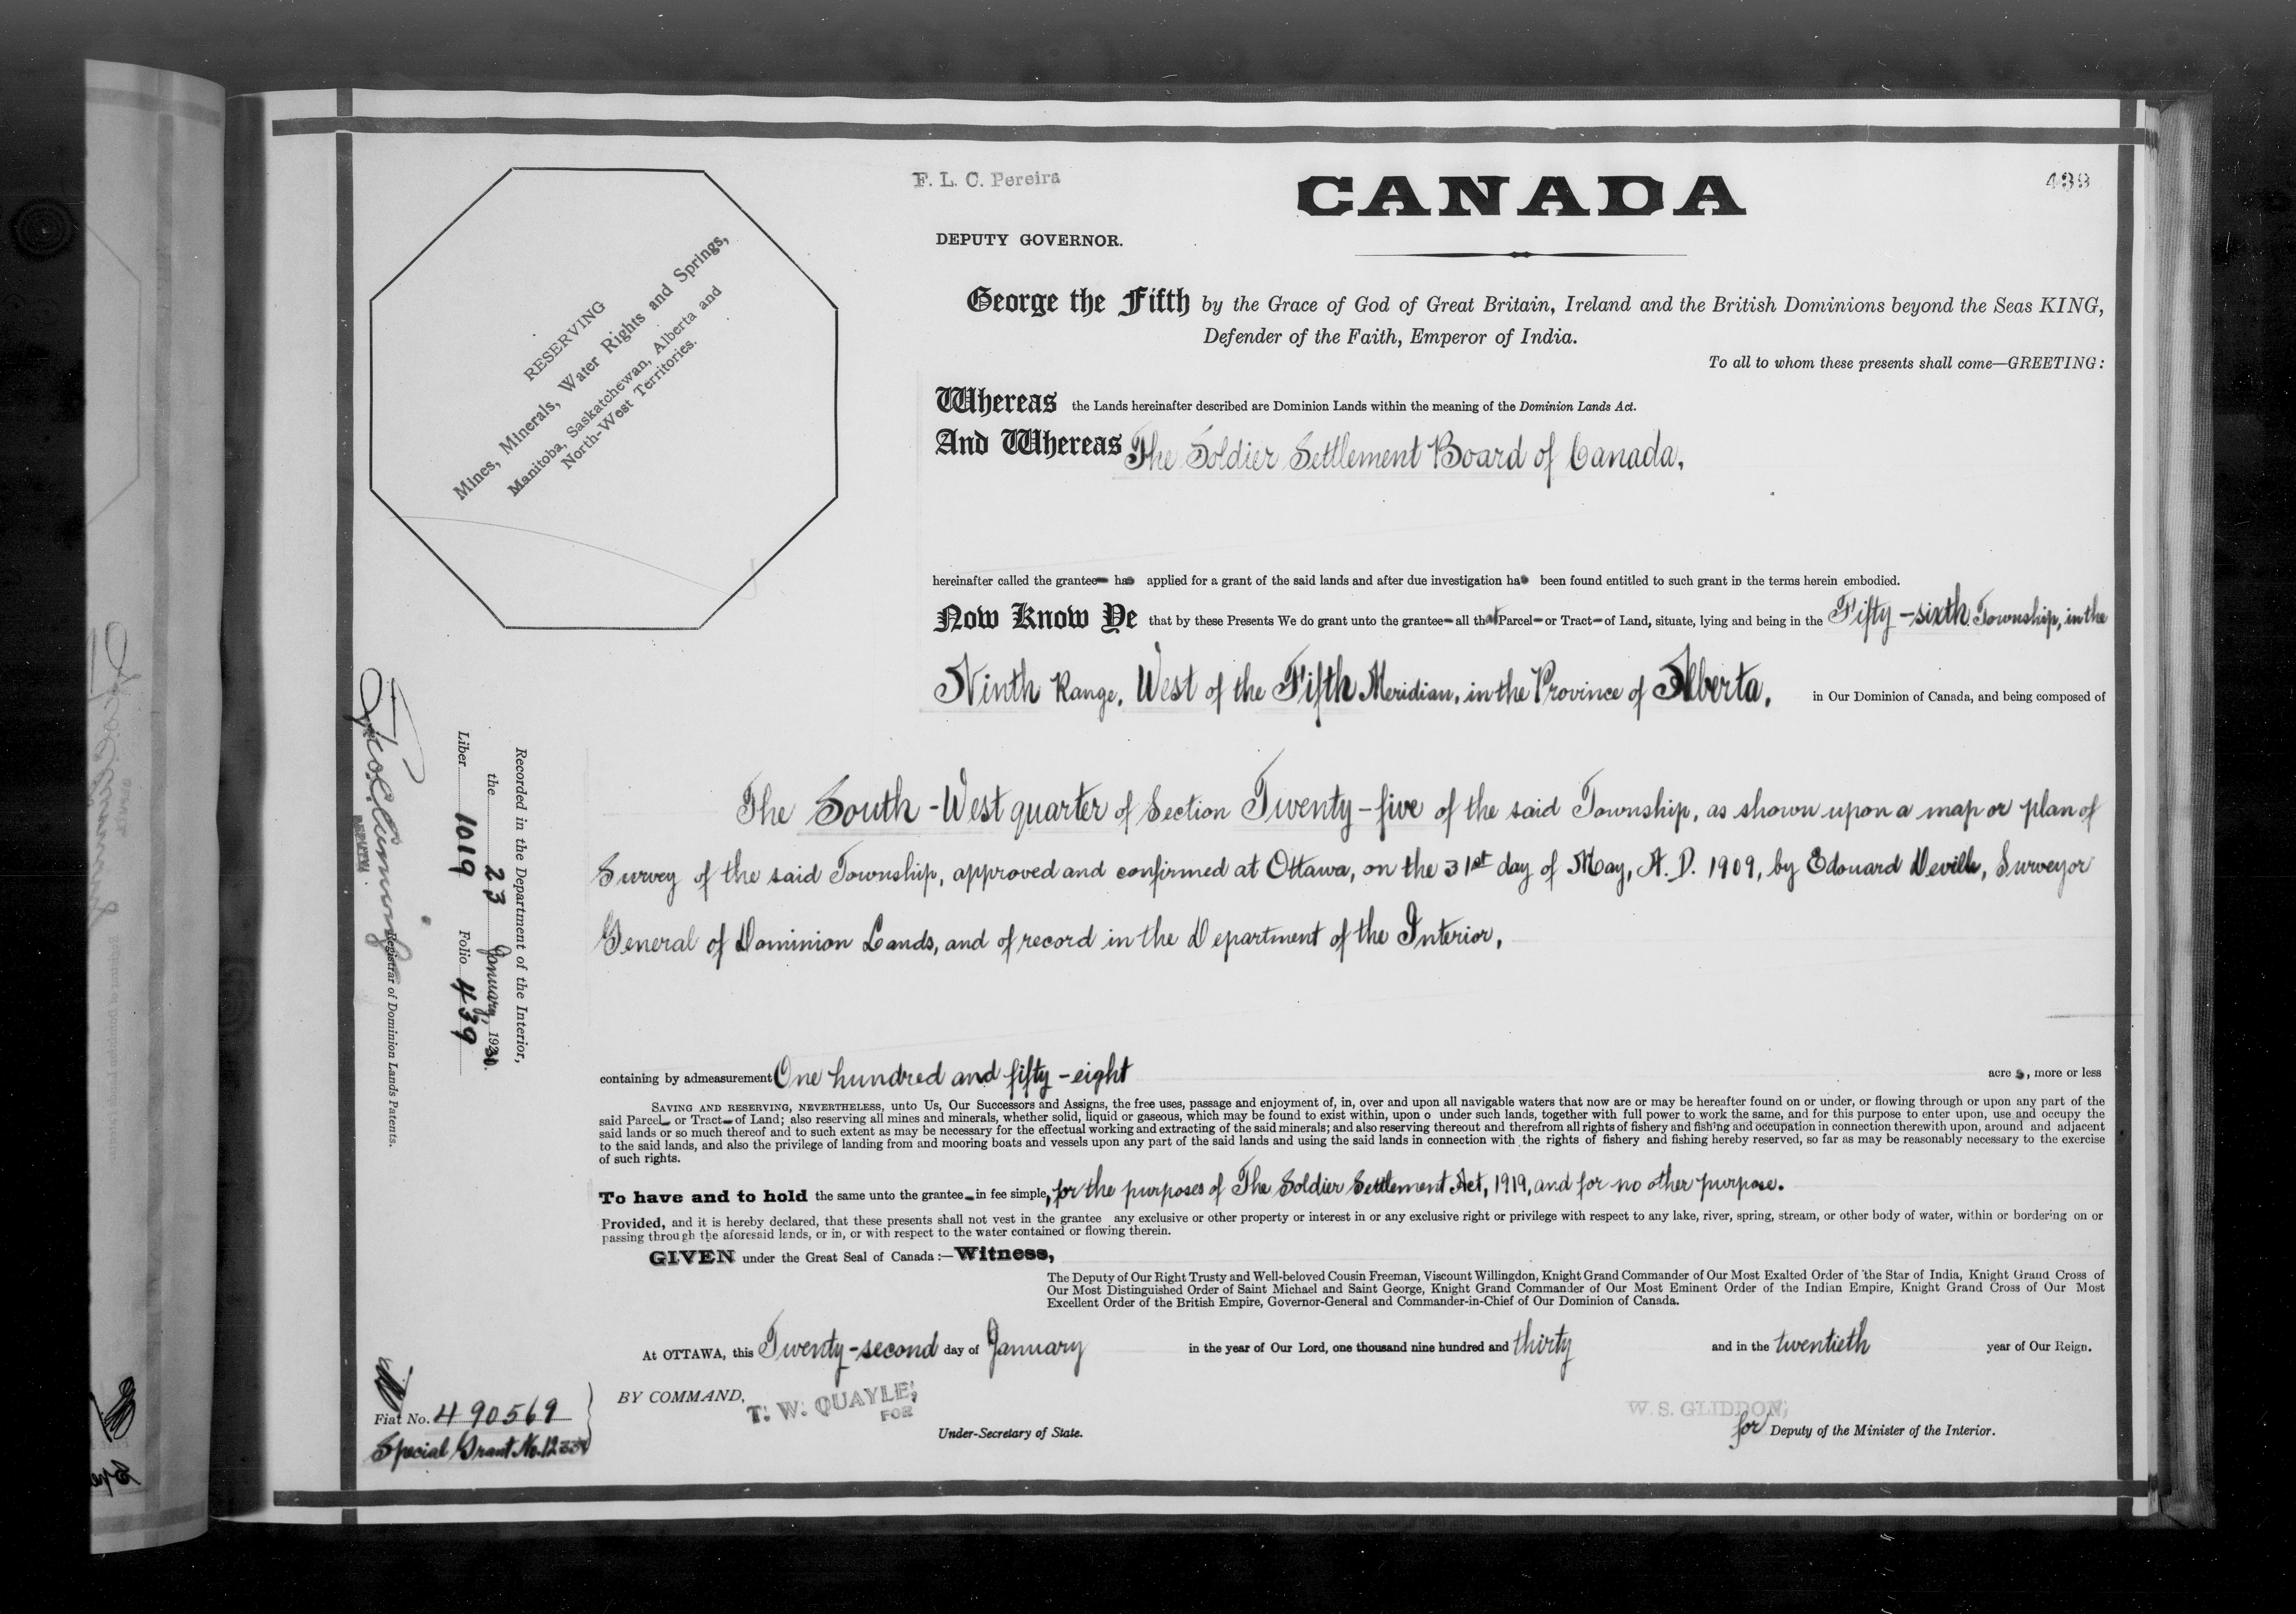 F. L. C. Pereira
CANADA
439
DEPUTY GOVERNOR.
RESERVING
Mines, Minerals, Water Rights and Springs,
Manitoba, Saskatchewan, Alberta and
North-West Territories.
George the Fifth by the Grace of God of Great Britain, Ireland and the British Dominions beyond the Seas KING,
Defender of the Faith, Emperor of India.
To all to whom these presents shall come—GREETING:
Whereas the Lands hereinafter described are Dominion Lands within the meaning of the Dominion Lands Act.
And Whereas The Soldier Settlement Board of Canada,
hereinafter called the grantee has applied for a grant of the said lands and after due investigation has been found entitled to such grant in the terms herein embodied.
Now Know Ye that by these Presents We do grant unto the grantee all that Parcel or Tract of Land, situate, lying and being in the Fifty-sixth Township, in the
Ninth Range, West of the Fifth Meridian, in the Province of Alberta, in Our Dominion of Canada, and being composed of
The South-West quarter of Section Twenty-five of the said Township, as shown upon a map or plan of
Survey of the said Township, approved and confirmed at Ottawa, on the 31st day of May, A. D. 1909, by Edouard Deville, Surveyor
General of Dominion Lands, and of record in the Department of the Interior,
containing by admeasurement One hundred and fifty-eight acres, more or less
SAVING AND RESERVING, NEVERTHELESS, unto Us, Our Successors and Assigns, the free uses, passage and enjoyment of, in, over and upon all navigable waters that now are or may be hereafter found on or under, or flowing through or upon any part of the
said Parcel or Tract of Land; also reserving all mines and minerals, whether solid, liquid or gaseous, which may be found to exist within, upon o under such lands, together with full power to work the same, and for this purpose to enter upon, use and occupy the
said lands or so much thereof and to such extent as may be necessary for the effectual working and extracting of the said minerals; and also reserving thereout and therefrom all rights of fishery and fishing and occupation in connection therewith upon, around and adjacent
to the said lands, and also the privilege of landing from and mooring boats and vessels upon any part of the said lands and using the said lands in connection with the rights of fishery and fishing hereby reserved, so far as may be reasonably necessary to the exercise
of such rights.
To have and to hold the same unto the grantee in fee simple, for the purposes of The Soldier Settlement Act, 1919, and for no other purpose.
Provided, and it is hereby declared, that these presents shall not vest in the grantee any exclusive or other property or interest in or any exclusive right or privilege with respect to any lake, river, spring, stream, or other body of water, within or bordering on or
passing through the aforesaid lands, or in, or with respect to the water contained or flowing therein.
GIVEN under the Great Seal of Canada:—Witness,
The Deputy of Our Right Trusty and Well-beloved Cousin Freeman, Viscount Willingdon, Knight Grand Commander of Our Most Exalted Order of the Star of India, Knight Grand Cross of
Our Most Distinguished Order of Saint Michael and Saint George, Knight Grand Commander of Our Most Eminent Order of the Indian Empire, Knight Grand Cross of Our Most
Excellent Order of the British Empire, Governor-General and Commander-in-Chief of Our Dominion of Canada.
At OTTAWA, this Twenty-second day of January in the year of Our Lord, one thousand nine hundred and thirty and in the twentieth year of Our Reign.
BY COMMAND,
T. W. QUAYLE,
FOR
Under-Secretary of State.
W. S. GLIDDON,
for Deputy of the Minister of the Interior.
Recorded in the Department of the Interior,
the 23 January, 1930.
Liber 1019 Folio 439
DEPUTY
Registrar of Dominion Lands Patents.
Fiat No. 490569
Special Grant No.